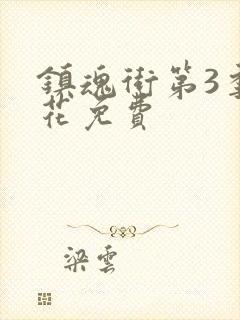 鎮魂街第3季
花免費
梁雲